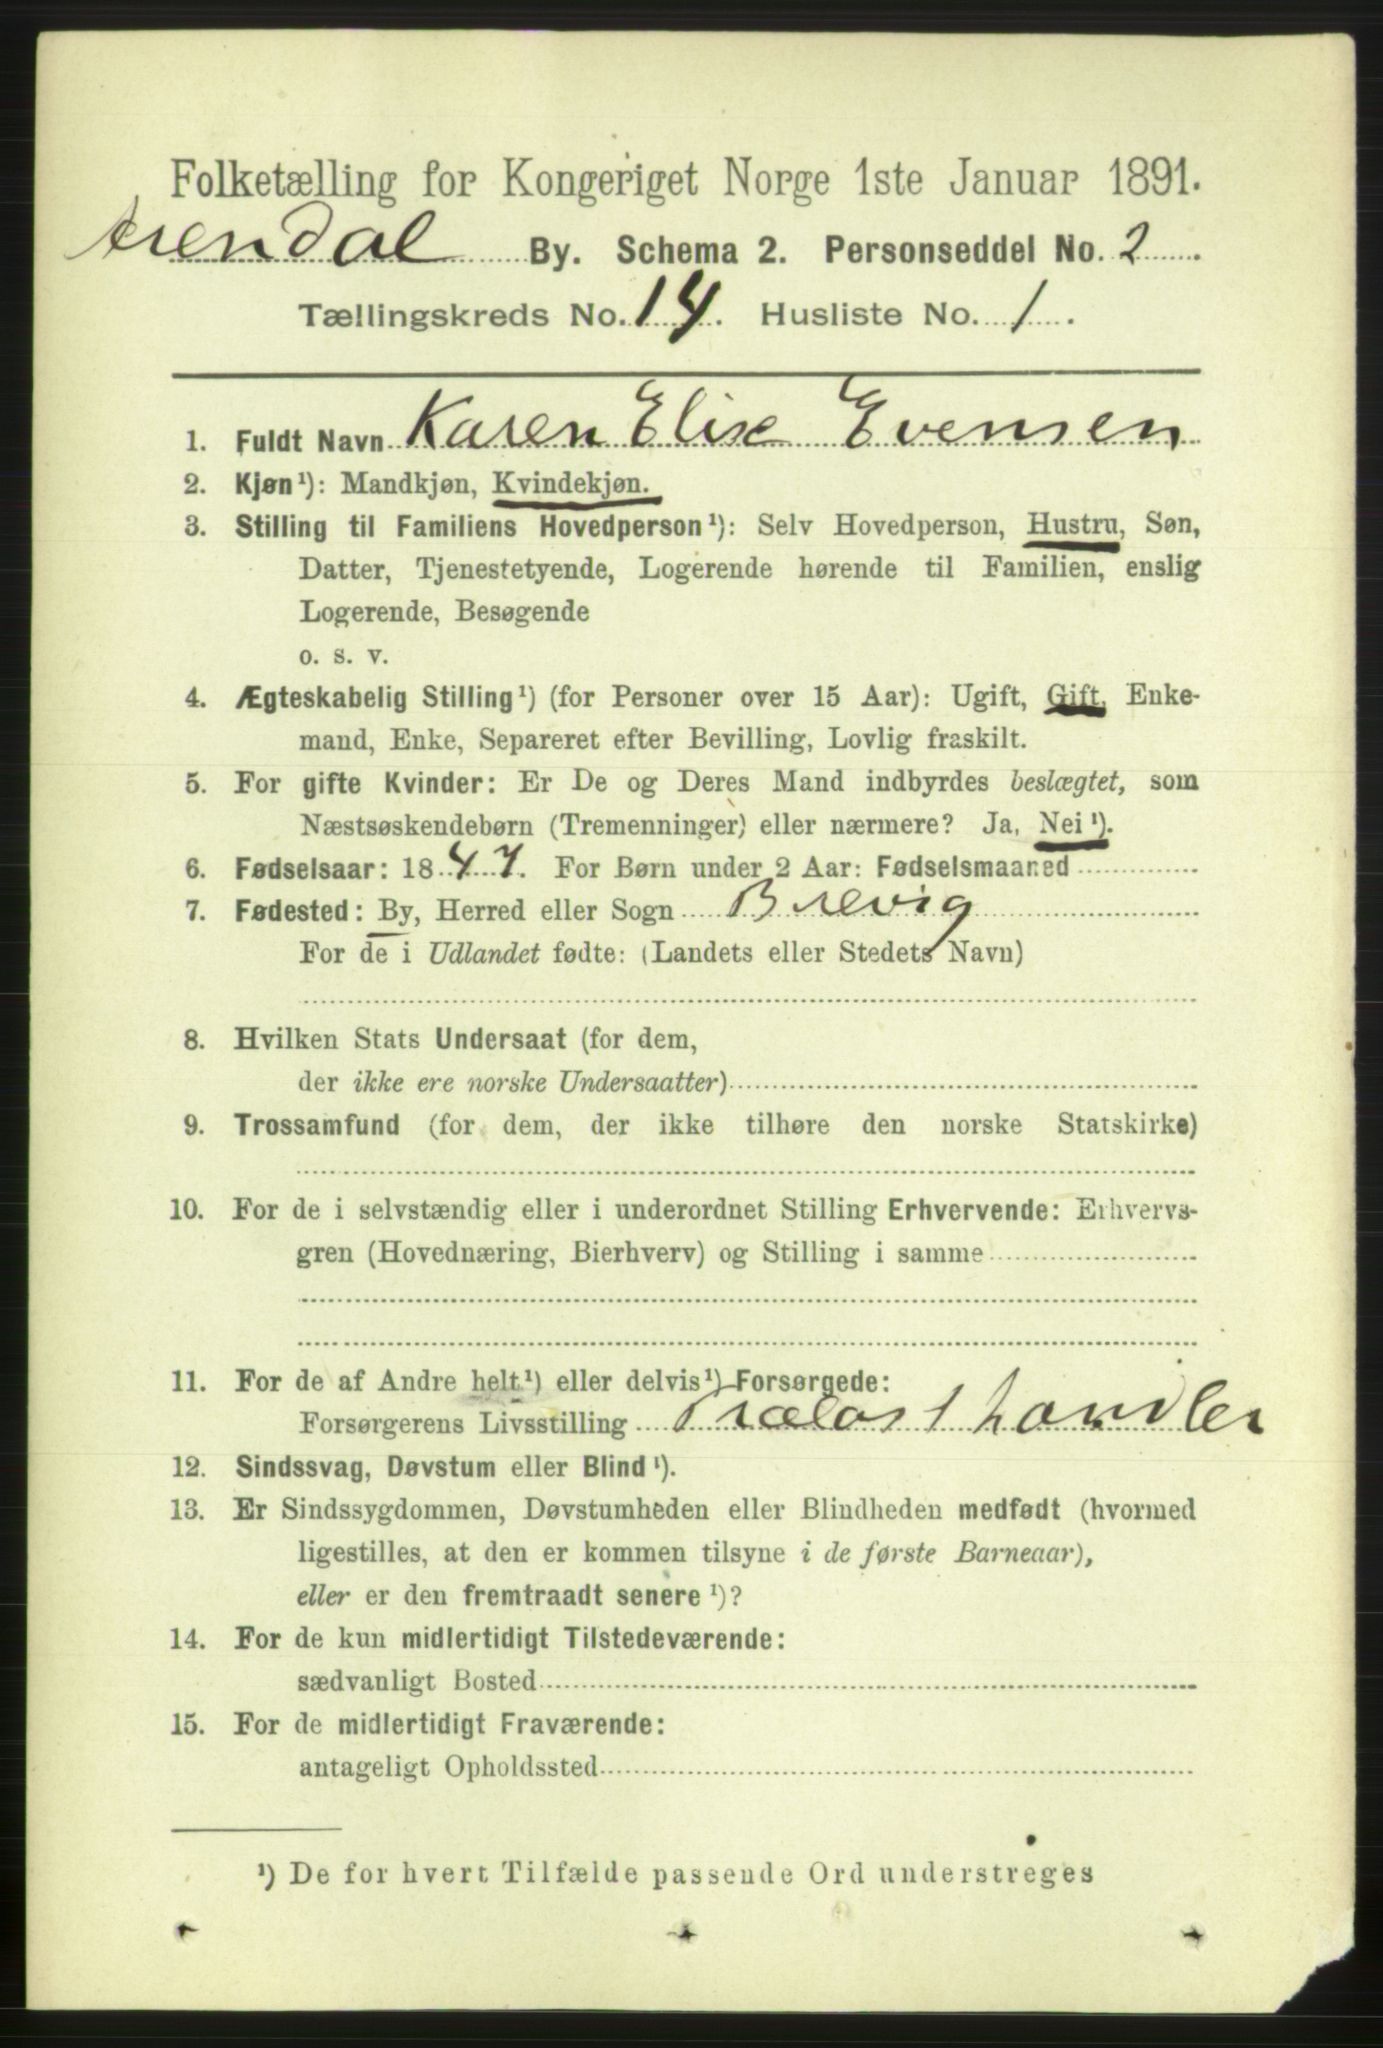 Folketælling for Kongeriget Norge 1ste Januar 1891.
Arendal By. Schema 2. Personseddel No. 2
Tællingskreds No. 14. Husliste No. 1.
1. Fuldt Navn Karen Elise Evensen
2. Kjøn¹): Mandkjøn, Kvindekjøn.
3. Stilling til Familiens Hovedperson¹): Selv Hovedperson, Hustru, Søn,
Datter, Tjenestetyende, Logerende hørende til Familien, enslig
Logerende, Besøgende
o. s. v.
4. Ægteskabelig Stilling¹) (for Personer over 15 Aar): Ugift, Gift, Enke-
mand, Enke, Separeret efter Bevilling, Lovlig fraskilt.
5. For gifte Kvinder: Er De og Deres Mand indbyrdes beslægtet, som
Næstsøskendebørn (Tremenninger) eller nærmere? Ja, Nei¹).
6. Fødselsaar: 1847. For Børn under 2 Aar: Fødselsmaaned
7. Fødested: By, Herred eller Sogn Brevig
For de i Udlandet fødte: (Landets eller Stedets Navn)
8. Hvilken Stats Undersaat (for dem,
der ikke ere norske Undersaatter)
9. Trossamfund (for dem, der ikke tilhøre den norske Statskirke)
10. For de i selvstændig eller i underordnet Stilling Erhvervende: Erhvervs-
gren (Hovednæring, Bierhverv) og Stilling i samme
11. For de af Andre helt¹) eller delvis¹) Forsørgede:
Forsørgerens Livsstilling Trælasthandler
12. Sindssvag, Døvstum eller Blind¹).
13. Er Sindssygdommen, Døvstumheden eller Blindheden medfødt (hvormed
ligestilles, at den er kommen tilsyne i de første Barneaar),
eller er den fremtraadt senere¹)?
14. For de kun midlertidigt Tilstedeværende:
sædvanligt Bosted
15. For de midlertidigt Fraværende:
antageligt Opholdssted
¹) De for hvert Tilfælde passende Ord understreges